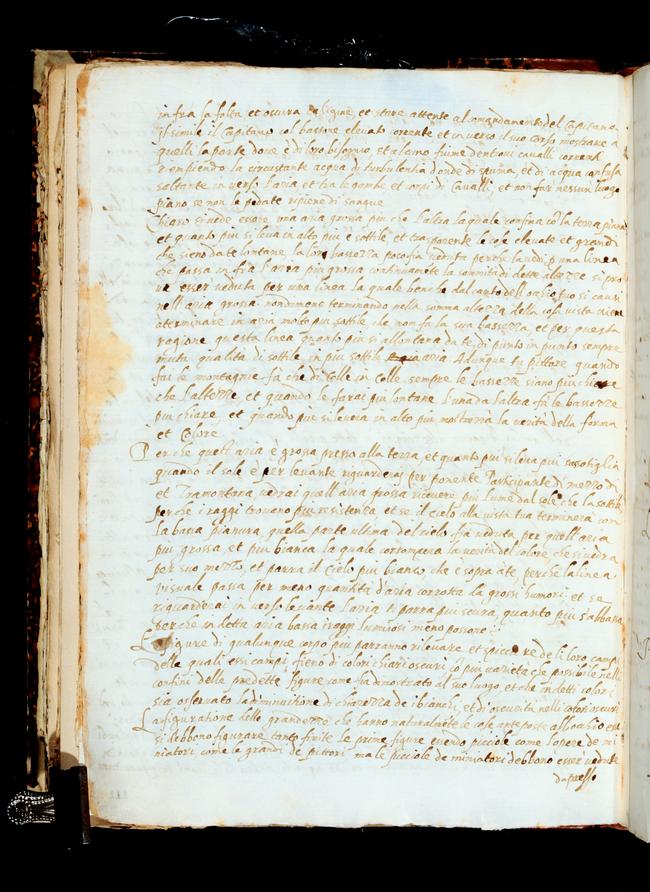 in fra la folta et oscura caligine et stare attente al comandamento del Capitano
il simile il Capitano col bastone elevato corrente et in verso il suo corso mostrare a
quelli la parte dove è di loro bisogno, et alcun fiume dentroui cavalli correnti
rompiendo la circustante acqua di turbulentia d'onde di spuma, et di acqua confusa
saltante in verso l'aria et tra le gambe et corpi di Cavalli, et non far nessun luogo
piano se non le pedate ripiene di sangue
Chiaro si vede essere una aria grossa piu che l'altra la quale confina cō la terra piana
et quanto piu si leva in alto piu è sottile, et trasparente le cose elevate et grandi
che sieno da te lontane, la lor bassezza poco fia veduta perche la vedi p una linea
che passa in fra l'aria piu grossa continuamēte la sommità di dette altezze si pro
va esser veduta per una linea la quale benche dal canto dell ochio tuo si causi
nell'aria grossa nondimeno terminando nella somma altezza della cosa vista viene
a terminare in aria molto piu sottile che non fa la sua bassezza, et per questa
ragione questa linea quanto piu si allontana da te di punto in punto sempre
muta qualità di sottile in piu sottile aria Adunque tu pittore quando
fai le montagnie fa che di Colle in Colle sempre le bassezze siano piu chiare
che l'altezze et quando le farai piu lontane l'una da l'altra fa le bassezze
piu chiare, et quando piu si levera in alto piu mostrerra la verità della forma
et Colore
Perche quest'aria è grossa presso alla terra, et quanto piu si leva piu s'assottiglia
quando il sole è per levante riguarderai per ponente Participante di mezzo di
et Tramontana, vedrai quell'aria grossa ricevere piu lume dal sole che la sottile
perche i raggi trovano piu resistenza et se il cielo alla vista tua terminera con
la bassa pianura, quella parte ultima del cielo fia veduta per quell'aria
piu grossa et piu bianca la quale corrompera la verità del colore che si vedra
per suo mezzo, et parra il cielo piu bianco che sopra a te, perche la linea
visuale passa per meno quantità d'aria corrotta da grossi humori: et se
riguarderai in verso levante l'aria ti parra piu scura, quanto piu s'abbassa
perche in detta aria bassa i raggi luminosi meno passono
Le figure di qualunque corpo piu parranno rilevare et spiccare de li loro campi
delle quali essi campi, fieno di colori chiari oscuri cō piu varietà che possibile nelli
confini delle predette figure come fia dimostrato al suo luogo, et che in detti colori
sia osservato la diminutione di chiarezza de i bianchi, et di oscurità nelli colori oscuri
La figuratione delle grandezze che hanno naturalmēte le cose anteposte all'ochio ess
si debbono figurare tanto finite le prime figure essendo picciole come l'opere de mi
niatori, come le grandi de pittori ma le picciole de miniatori debbono esser vedute
dapresso